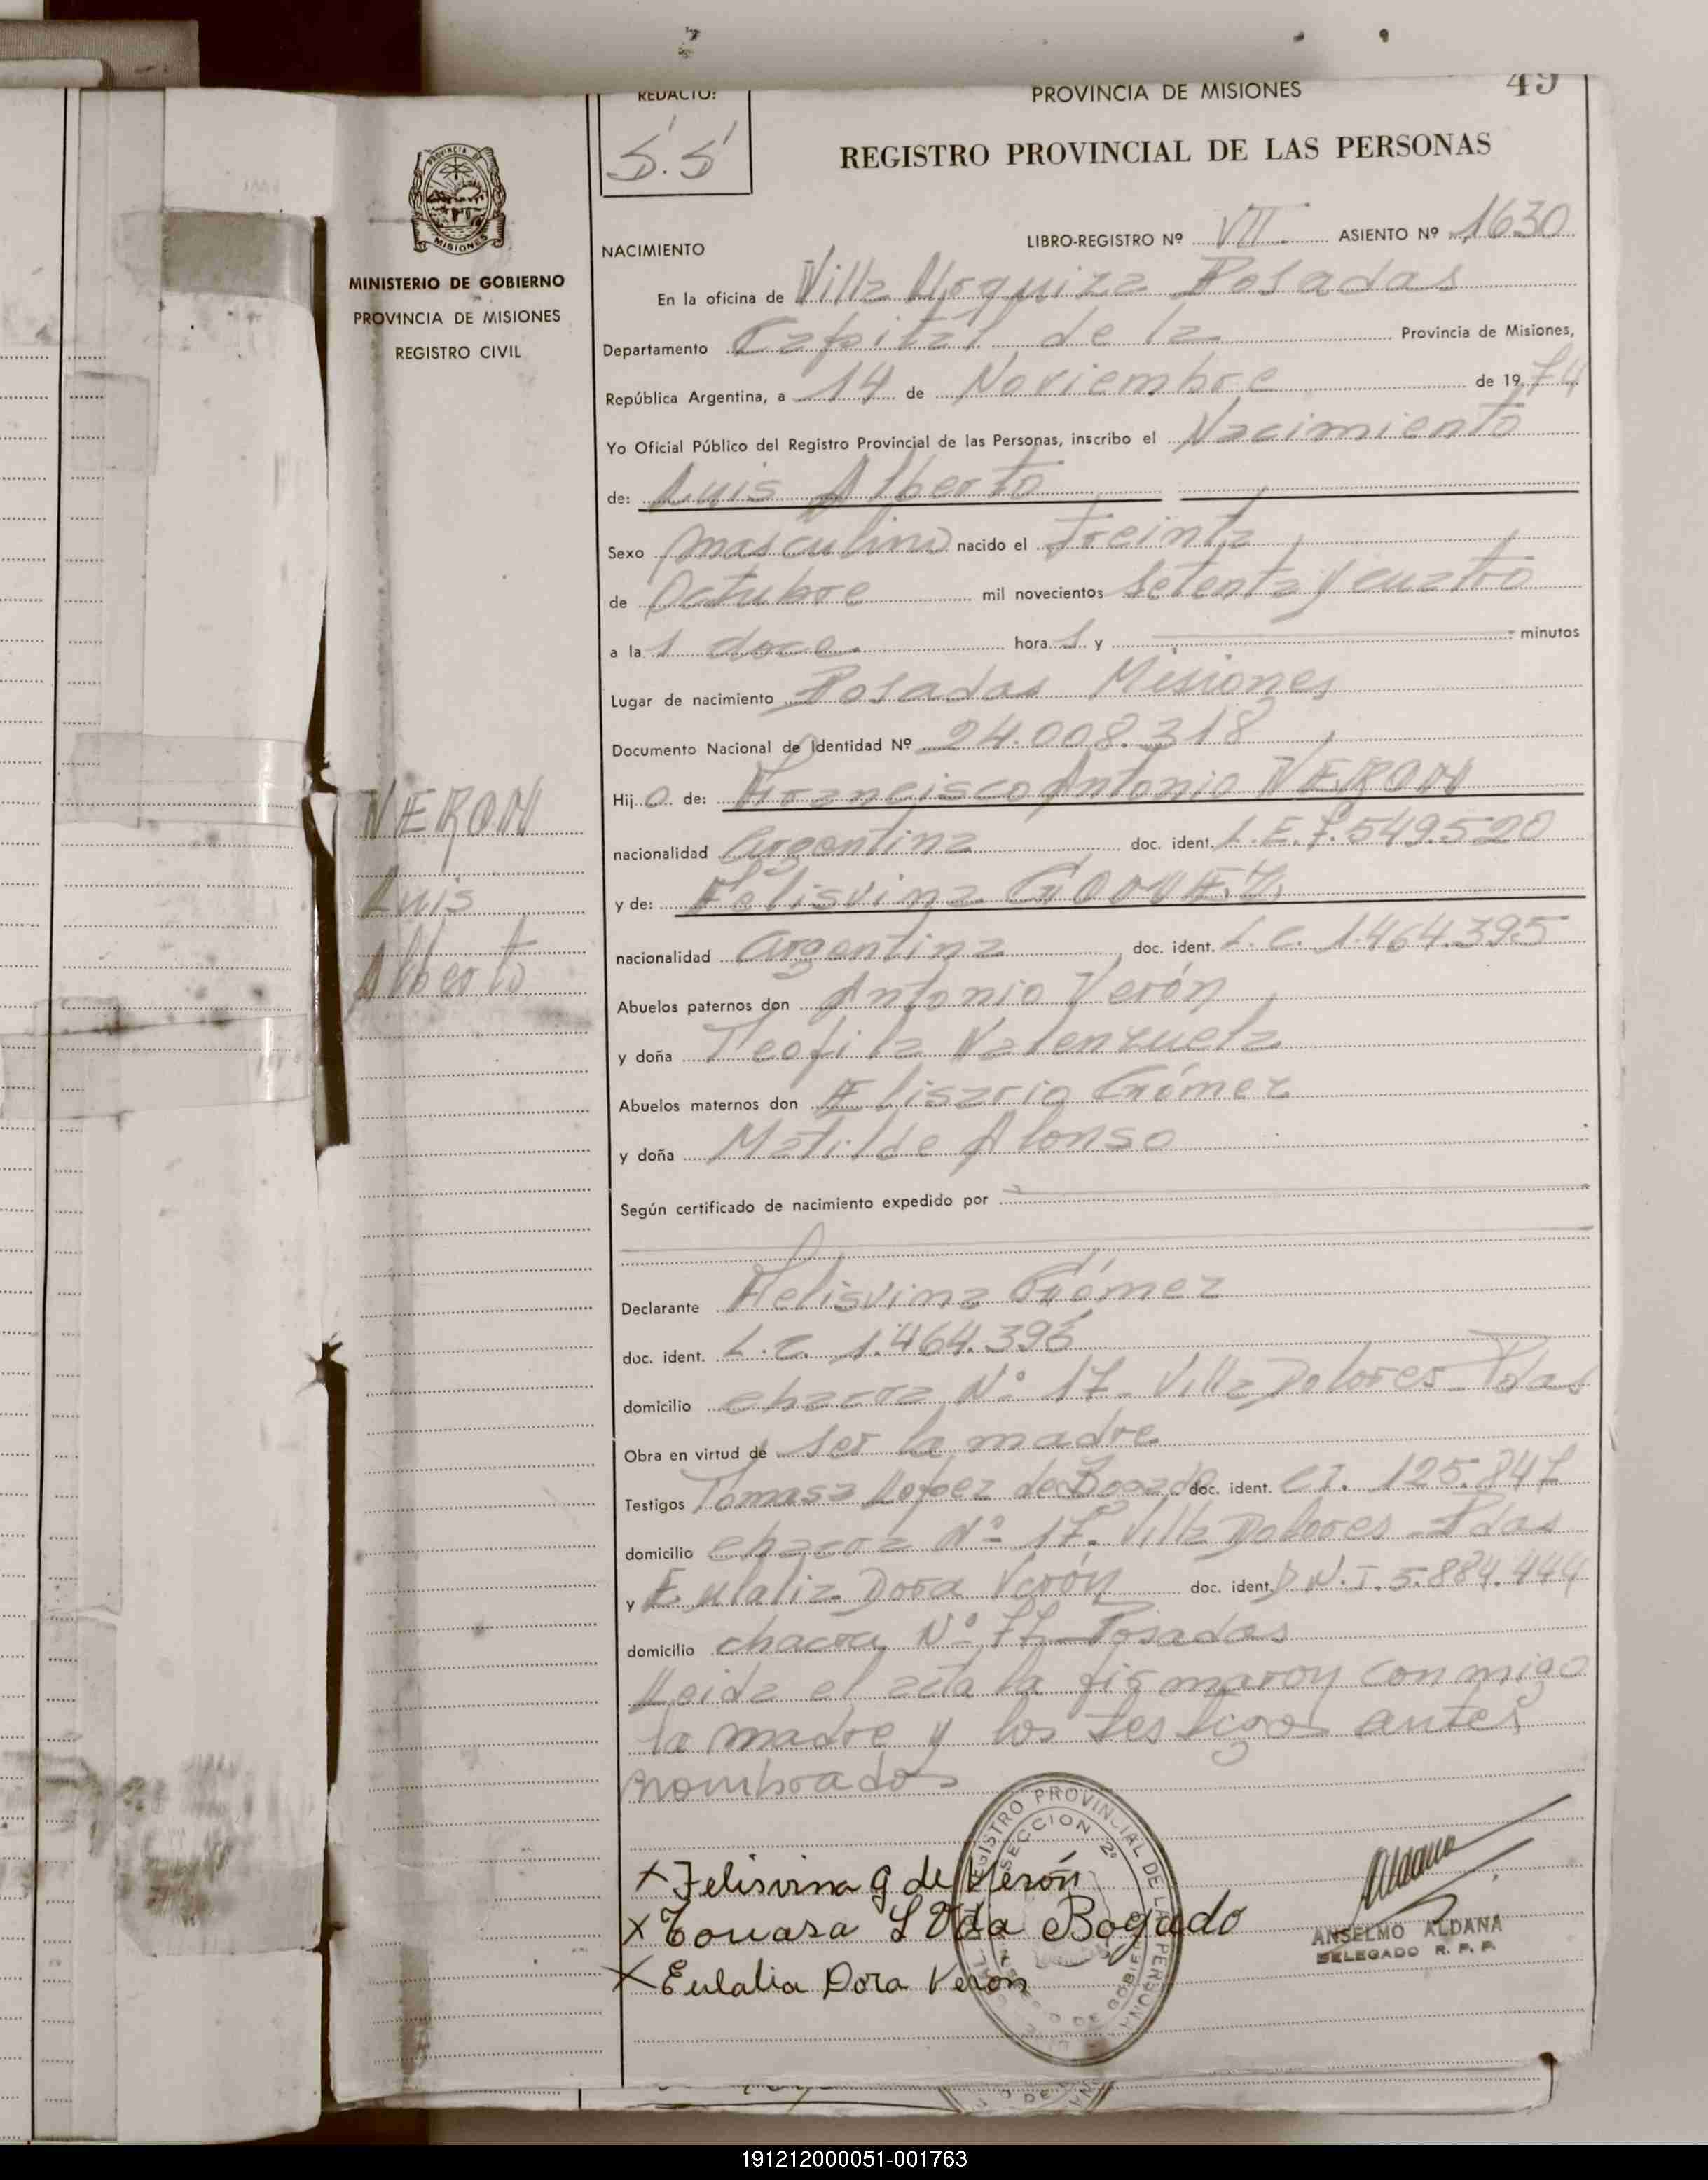 49
REDACTO:
S.S
PROVINCIA DE MISIONES
REGISTRO PROVINCIAL DE LAS PERSONAS
PROVINCIA DE
MISIONES
MINISTERIO DE GOBIERNO
PROVINCIA DE MISIONES
REGISTRO CIVIL
VERON
Luis
Alberto
NACIMIENTO
LIBRO-REGISTRO Nº VII ASIENTO Nº 1630
En la oficina de Villa Urquiza Posadas
Departamento Capital de la Provincia de Misiones,
República Argentina, a 14 de Noviembre de 1974
Yo Oficial Público del Registro Provincial de las Personas, inscribo el Nacimiento
de: Luis Alberto
Sexo masculino nacido el treinta
de Octubre mil novecientos setenta y cuatro
a la s doce hora s y minutos
Lugar de nacimiento Posadas Misiones
Documento Nacional de Identidad Nº 24.008.318
Hij o de: Francisco Antonio VERON
nacionalidad argentina doc. ident. L.E. 7.549.520
y de: Felisvina GOMEZ
nacionalidad argentina doc. ident. L.C. 1.464.395
Abuelos paternos don Antonio Verón
y doña Teofila Valenzuela
Abuelos maternos don Elisario Gómez
y doña Matilde Alonso
Según certificado de nacimiento expedido por
Declarante Felisvina Gómez
doc. ident. L.C. 1.464.395
domicilio chacra Nº 17 - Villa Dolores - Pdas
Obra en virtud de ser la madre
Testigos Tomasa Lopez de doc. ident. C.I. 125.847
domicilio chacra Nº 17. Villa Dolores - Pdas
y Eulalia Dora Verón doc. ident. D.N.I. 5.884.444
domicilio chacra Nº 77 Posadas
Leida el acta la firmaron conmigo
la madre y los testigos antes
nombrados
REGISTRO PROVINCIAL DE LAS PERSONAS
SECCION 2ª
X Felisvina g de Verón
X Tomasa L Vda Bogado
X Eulalia Dora Verón
Aldana
ANSELMO ALDANA
DELEGADO R. P. P.
191212000051-001763